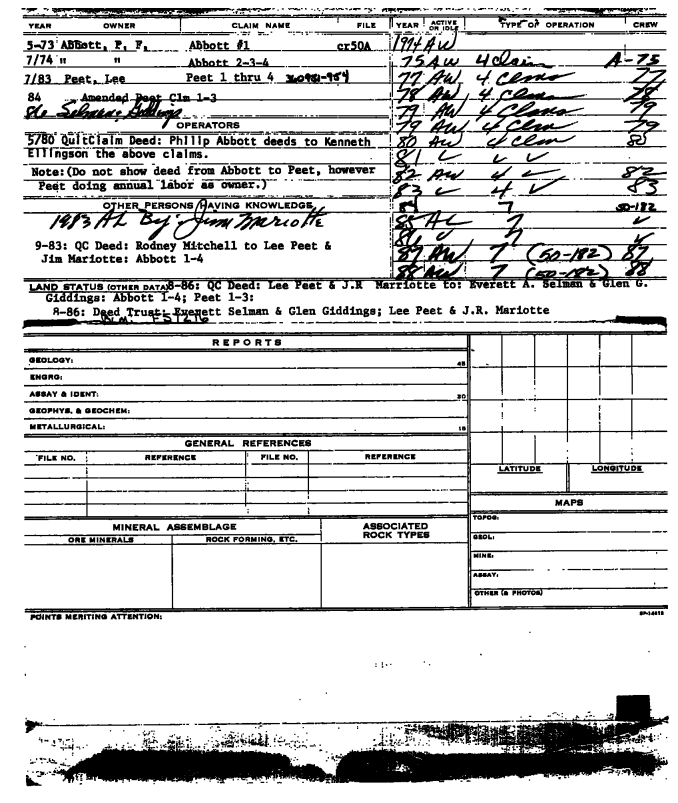 YEAR OWNER CLAIM NAME FILE
5-73 Abbott, P. F. Abbott #1 cr50A
7/74 " " Abbott 2-3-4
7/83 Peet, Lee Peet 1 thru 4
84 Amended Peet Clm 1-3
86 Selman & Giddings
OPERATORS
5/80 QuitClaim Deed: Philip Abbott deeds to Kenneth
Ellingson the above claims.
Note:(Do not show deed from Abbott to Peet, however
Peet doing annual labor as owner.)
OTHER PERSONS HAVING KNOWLEDGE
1983 AL By: Jim Mariotte
9-83: QC Deed: Rodney Mitchell to Lee Peet &
Jim Mariotte: Abbott 1-4
YEAR ACTIVE OR IDLE TYPE OF OPERATION CREW
1974 AW
75 AW 4 claim A-75
77 AW 4 Clms 77
78 AW 4 Clms 78
79 AW 4 Clms 79
79 AW 4 Clm 79
80 AW 4 Clm 80
81 ✓ ✓ ✓
82 AW 4 ✓ 82
83 ✓ 4 ✓ 83
84 7 50-182
85 AL 7 ✓
86 ✓ 7 ✓
87 AW 7 (50-182) 87
88 AW 7 (50-182) 88
LAND STATUS (OTHER DATA) 8-86: QC Deed: Lee Peet & J.R Marriotte to: Everett A. Selman & Glen G.
Giddings: Abbott 1-4; Peet 1-3:
8-86: Deed Trust: Everett Selman & Glen Giddings; Lee Peet & J.R. Mariotte
REPORTS
GEOLOGY: 45
ENGRG:
ASSAY & IDENT: 30
GEOPHYS. & GEOCHEM:
METALLURGICAL: 15
GENERAL REFERENCES
FILE NO. REFERENCE FILE NO. REFERENCE
MINERAL ASSEMBLAGE
ORE MINERALS ROCK FORMING, ETC.
ASSOCIATED
ROCK TYPES
LATITUDE LONGITUDE
MAPS
TOPOG:
GEOL:
MINE:
ASSAY:
OTHER (& PHOTOS)
POINTS MERITING ATTENTION: